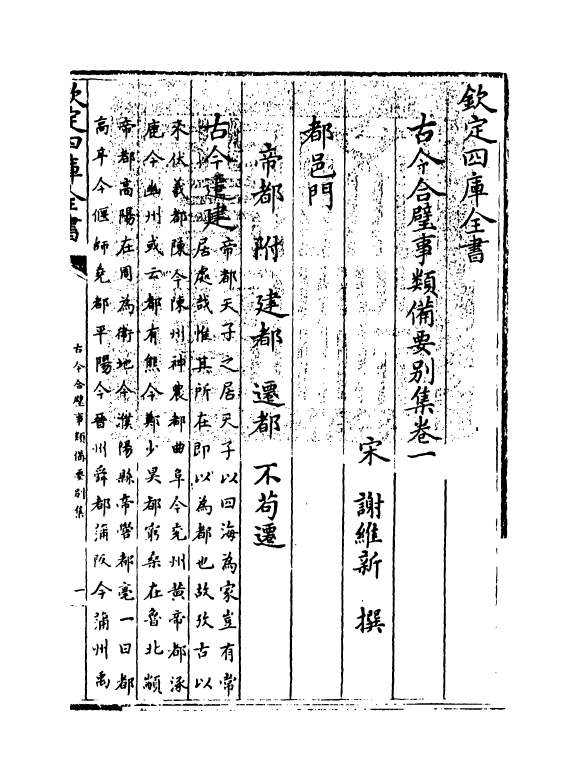 欽定四庫全書
古今合璧事類備要别集卷一
宋 謝維新 撰
都邑門
帝都 附 建都 遷都 不苟遷
古今遷建
帝都天子之居天子以四海為家豈有常
居處哉惟其所在即以為都也故攷古以
來伏羲都陳今陳州神農都曲阜今兖州黄帝都涿
鹿今幽州或云都有熊今鄭少昊都窮桑在魯北顓
帝都高陽在周為衛地今濮陽縣帝嚳都亳一曰都
高辛今偃師堯都平陽今晉州舜都蒲阪今蒲州禹
欽定四庫全書
古今合璧事類備要别集
一